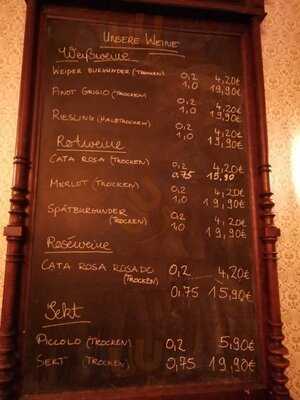 UNSERE WEINE
Weißweine
WEIßER BURGUNDER (TROCKEN) 0,2 4,20€
1,0 19,90€
PINOT GRIGIO (TROCKEN) 0,2 4,20€
1,0 19,90€
RIESLING (HALBTROCKEN) 0,2 4,20€
1,0 19,90€
Rotweine
CATA ROSA (TROCKEN) 0,2 4,20€
0,75 15,90
MERLOT (TROCKEN) 0,2 4,20€
1,0 19,90€
SPÄTBURGUNDER 0,2 4,20€
(TROCKEN) 1,0 19,90€
Roséweine
CATA ROSA ROSADO 0,2 4,20€
(TROCKEN) 0,75 15,90€
Sekt
PICCOLO (TROCKEN) 0,2 5,90€
SEKT (TROCKEN) 0,75 19,90€